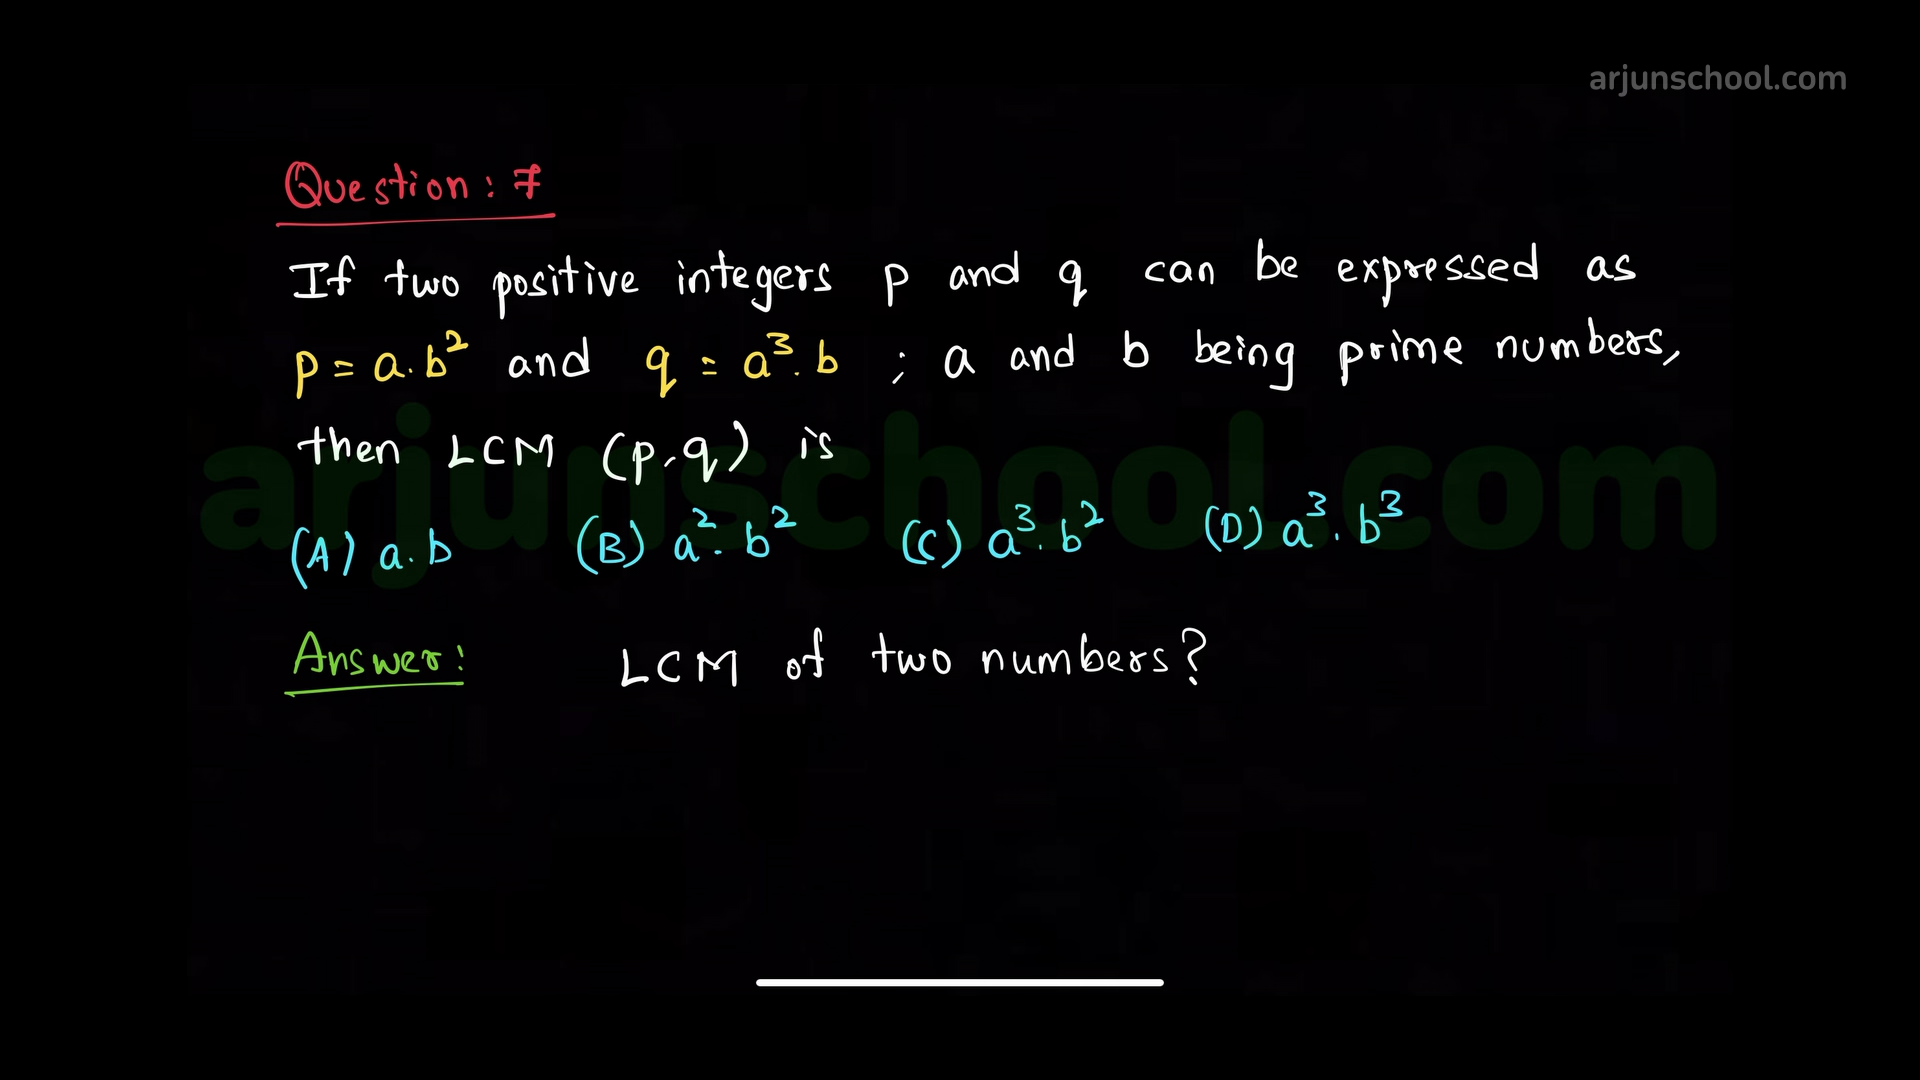 arjunschool.com
Question: 7
If two positive integers p and q can be expressed as
p = a.b² and q = a³.b ; a and b being prime numbers,
then LCM (p,q) is
(A) a.b (B) a².b² (C) a³.b² (D) a³.b³
arjunschool.com
Answer: LCM of two numbers?